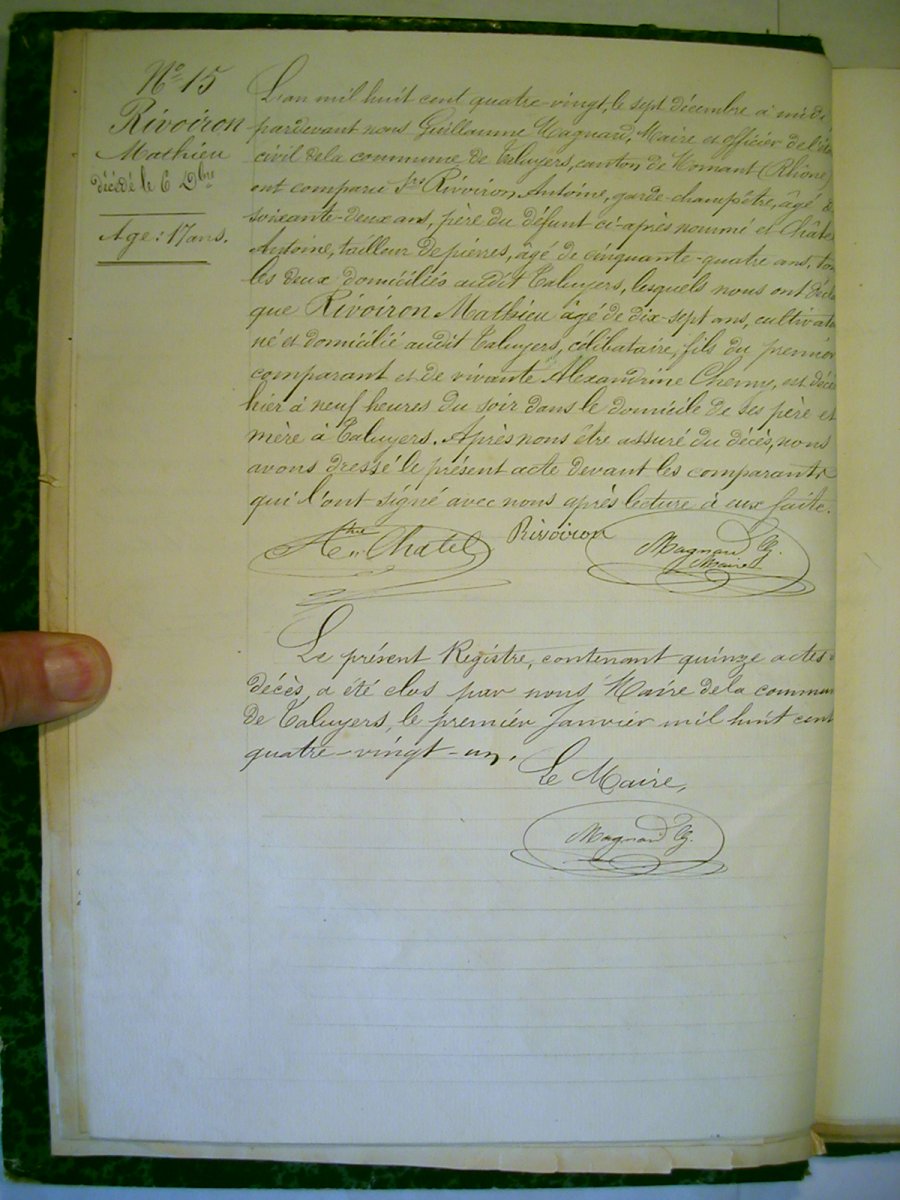 No 15
Rivoiron
Mathieu
décédé le 6 Dbre
Age: 17 ans.
L'an mil huit cent quatre-vingt, le sept décembre à midi,
pardevant nous Guillaume Magnard, Maire et officier de l'état
civil de la commune de Taluyers, canton de Mornant (Rhône)
ont comparu Srs Rivoiron, Antoine, garde-champêtre, âgé de
soixante-deux ans, père du défunt ci-après nommé et Châtel
Antoine, tailleur de pierres, âgé de cinquante-quatre ans, tous
les deux domiciliés audit Taluyers, lesquels nous ont décla
que Rivoiron Mathieu âgé de dix-sept ans, cultivate
né et domicilié audit Taluyers, célibataire, fils du premier
comparant et de vivante Alexandrine, est décé
hier à neuf heures du soir dans le domicile de ses père et
mère à Taluyers. Après nous être assuré du décès, nous
avons dressé le présent acte devant les comparants
qui l'ont signé avec nous après lecture à eux faite.
Atne Chatel Rivoiron Magnard G.
Maire
Le présent Registre, contenant quinze actes d
décès, a été clos par nous Maire de la commun
de Taluyers, le premier Janvier mil huit cent
quatre-vingt-un.
Le Maire,
Magnard G.